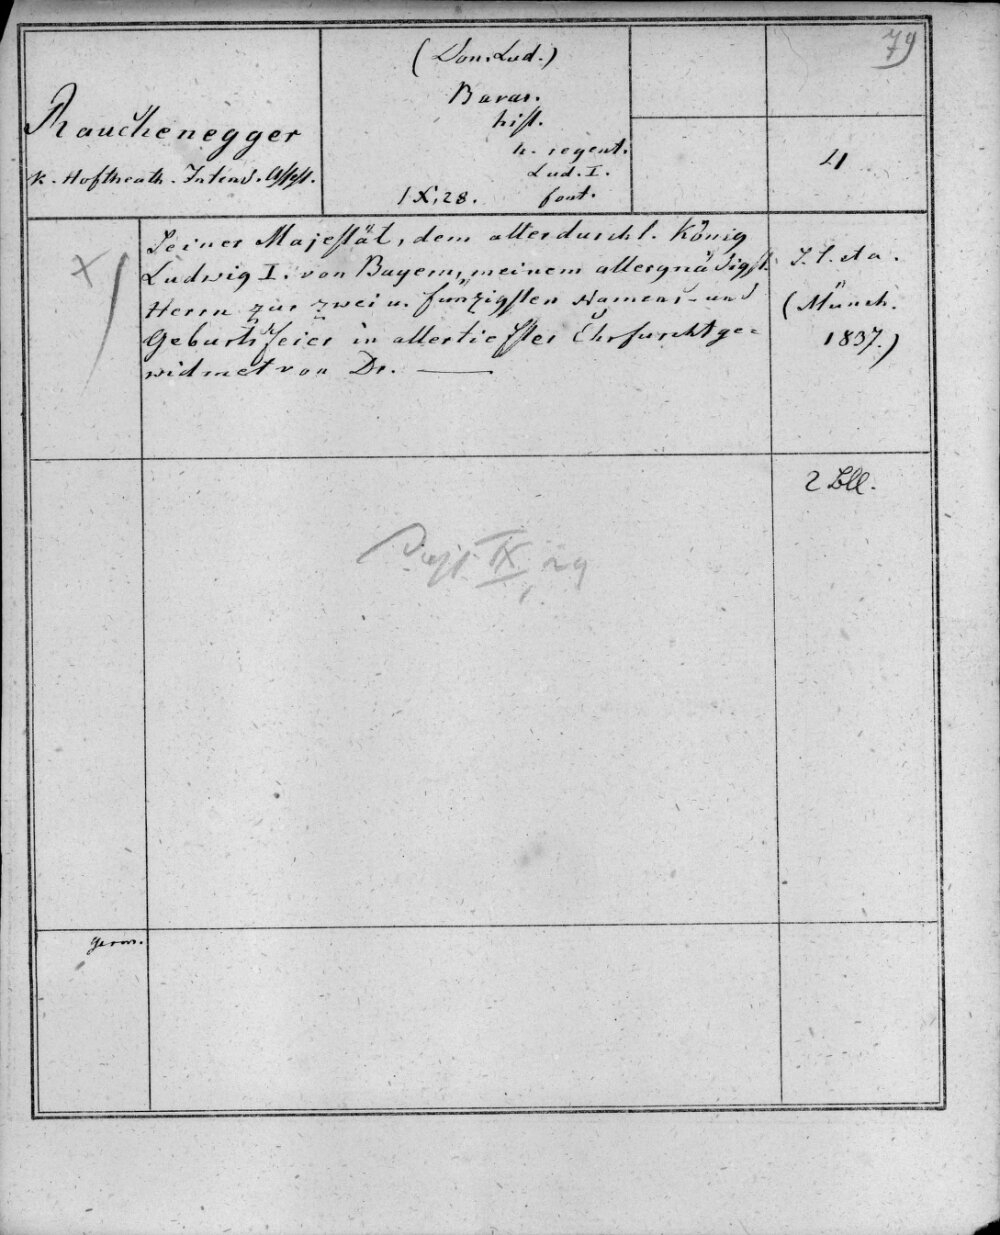 79
(Don. Lud.)
Bavar.
hist.
h. regent.
Lud. I.
font.
IX, 28.
Rauchenegger
k. Hoftheath. Intend. Assist.
4
Seiner Majestät, dem allerdurchl. König
Ludwig I. von Bayern, meinem allergnädigst.
Herrn zur zwei u. funzigsten Namens- und
Geburtsfeier in allertiefster Ehrfurcht ge=
widmet von Dr. ——
S. l. et a.
(Münch.
1837.)
2 Bll.
IX, 29
germ.